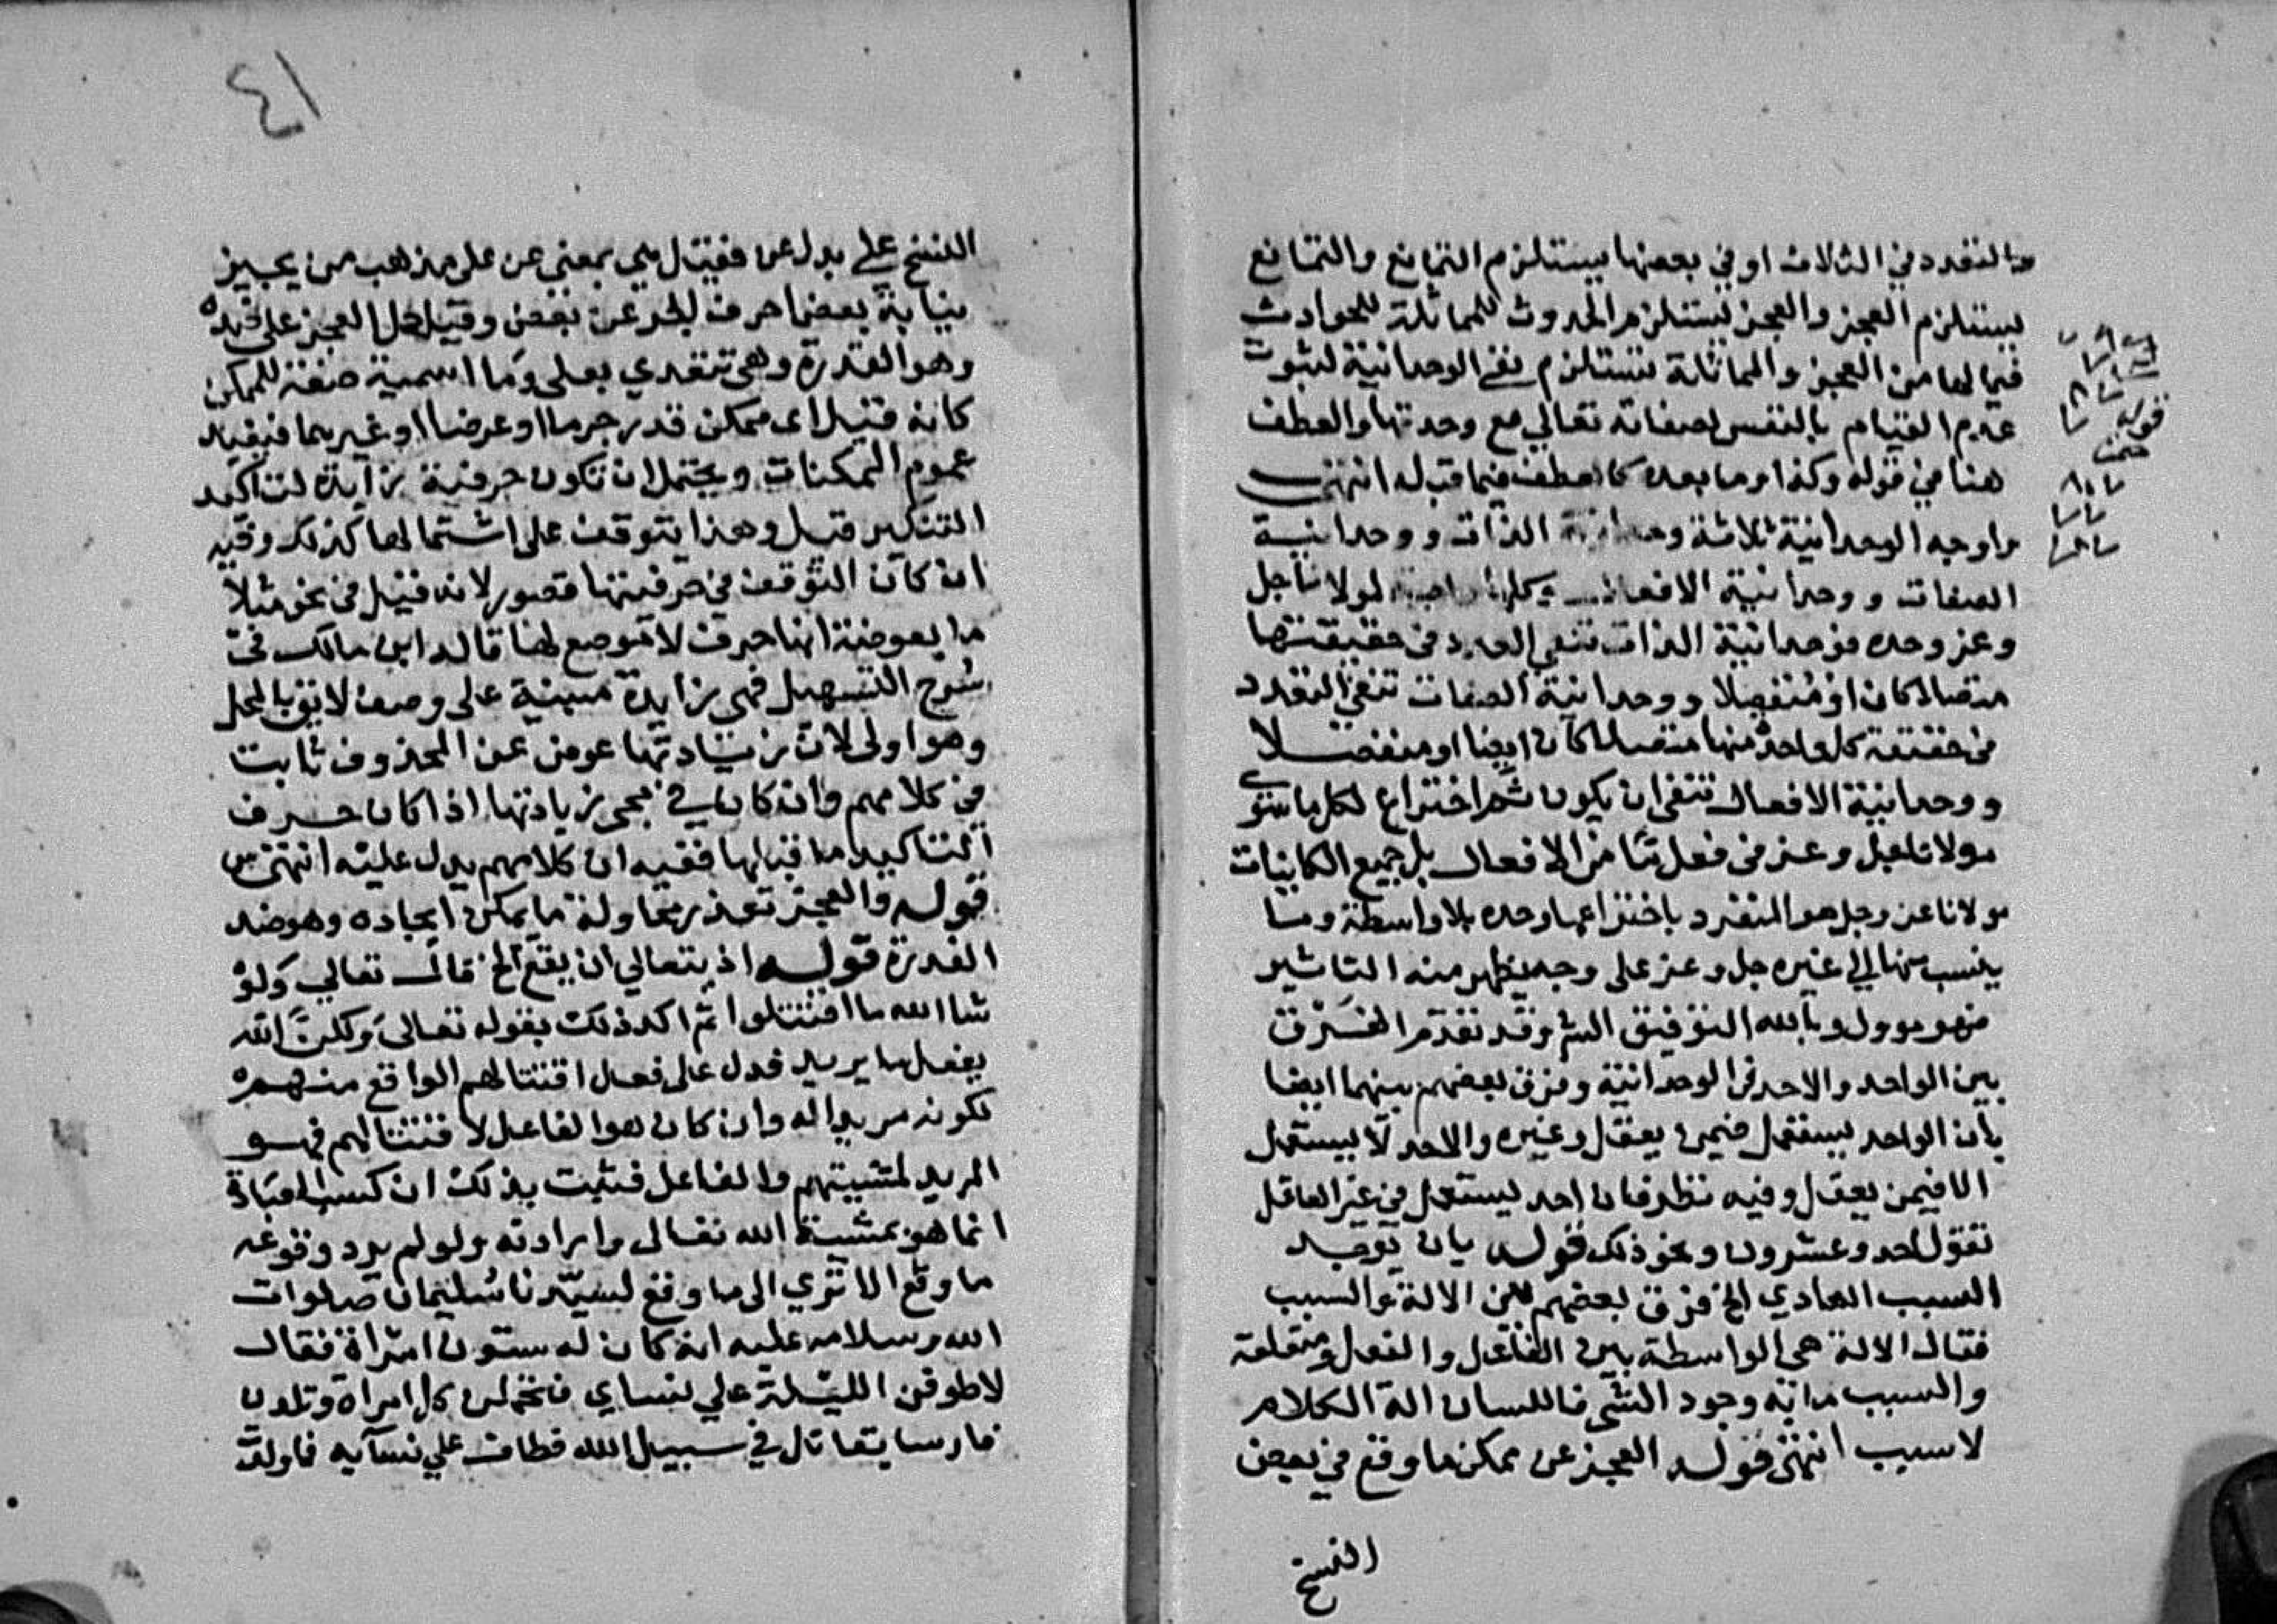 والتعدد في الثلاث او في بعضها يستلزم التمانع والتمانع
يستلزم العجز والعجز يستلزم الحدوث للمماثلة للحوادث
فيما لها من العجز والمماثلة تستلزم نفي الوحدانية لثبوت
عدم القيام بالنفس لصفاته تعالي مع وحدتها والعطف
هنا في قوله وكذا وما بعده كالعطف فيما قبله انتهى
واوجه الوحدانية ثلاثة وحدانية الذات ووحدانية
الصفات ووحدانية الافعال وكلها واجبة لمولانا جل
وعز وحده فوحدانية الذات تنفي التعدد في حقيقتها
متصلا كان او منفصلا ووحدانية الصفات تنفي التعدد
في حقيقة كل واحدة منها متصلا كان ايضا او منفصلا
ووحدانية الافعال تنفي ان يكون ثم اختراع لكل ما سوى
مولانا جل وعز في فعل ما من الافعال بل جميع الكاينات
مولانا عز وجل هو المنفرد باختراعها وحده بلا واسطة وما
ينسب منها الي غيره جل وعز على وجه يظهر منه التاثير
فهو موول وبالله التوفيق الشـ وقد تقدم الفرق
بين الواحد والاحد في الوحدانية وفرق بعضهم بينهما ايضا
بان الواحد يستعمل فيمن يعقل وغيره والاحد لا يستعمل
الا فيمن يعقل وفيه نظر فان احد يستعمل في غير العاقل
تقول احد وعشرون ونحو ذلك قوله بان يوجد
السبب العادي الخ فرق بعضهم بين الالة والسبب
فقال الالة هي الواسطة بين الفاعل والفعل ومتعلقه
والسبب ما به وجود الشي فاللسان الة الكلام
لا سبب انتهى قوله العجز عن ممكن ما وقع في بعض
النسخ
قوله
٤١
النسخ علي بدل عن فقيل هي بمعنى عن على مذهب من يجيز
نيابة بعض احرف الجر عن بعض وقيل حمل العجز على ضده
وهو القدرة وهي تتعدي بعلى وما اسمية صفة للممكن
كانه قيل اى ممكن قدر جرما او عرضا او غيرهما فيفيد
عموم الممكنات ويحتمل ان تكون حرفية زايدة لتاكيد
التنكير قيل وهذا يتوقف على اشتمالها كذلك وفيه
ان كان التوقف في حرفيتها قصور لانه قيل في نحو مثلا
ما بعوضة انها حرف لا موضع لها قاله ابن مالك في
شرح التسهيل فهي زايدة منبهة على وصف لايق بالمحل
وهو اولى لان زيادتها عوض عن المحذوف ثابت
في كلامهم وان كان في مجى زيادتها اذا كان حرف
التاكيد ما قبلها ففيه ان كلامهم يدل عليه انتهى من
قوله والعجز تعذر محاولة ما يمكن ايجاده وهو ضد
القدرة قوله اذ يتعالي ان يقع الخ قال تعالي ولو
شا الله ما اقتتلوا ثم اكد ذلك بقوله تعالى ولكن الله
يفعل ما يريد فدل على فعل اقتتالهم الواقع منهم
لكونه مريدا له وان كان هو الفاعل لاقتتالهم فهو
المريد لمشيتهم والفاعل فثبت بذلك ان كسب العبادة
انما هو بمشية الله تعالى وارادته ولو لم يرد وقوعه
ما وقع الا تري الى ما وقع لسيدنا سليمان صلوات
الله وسلامه عليه انه كان له ستون امراة فقال
لاطوفن الليلة علي نساي فتحملن كل امراة وتلدن
فارسا يقاتل في سبيل الله فطاف علي نسآيه فما ولدت